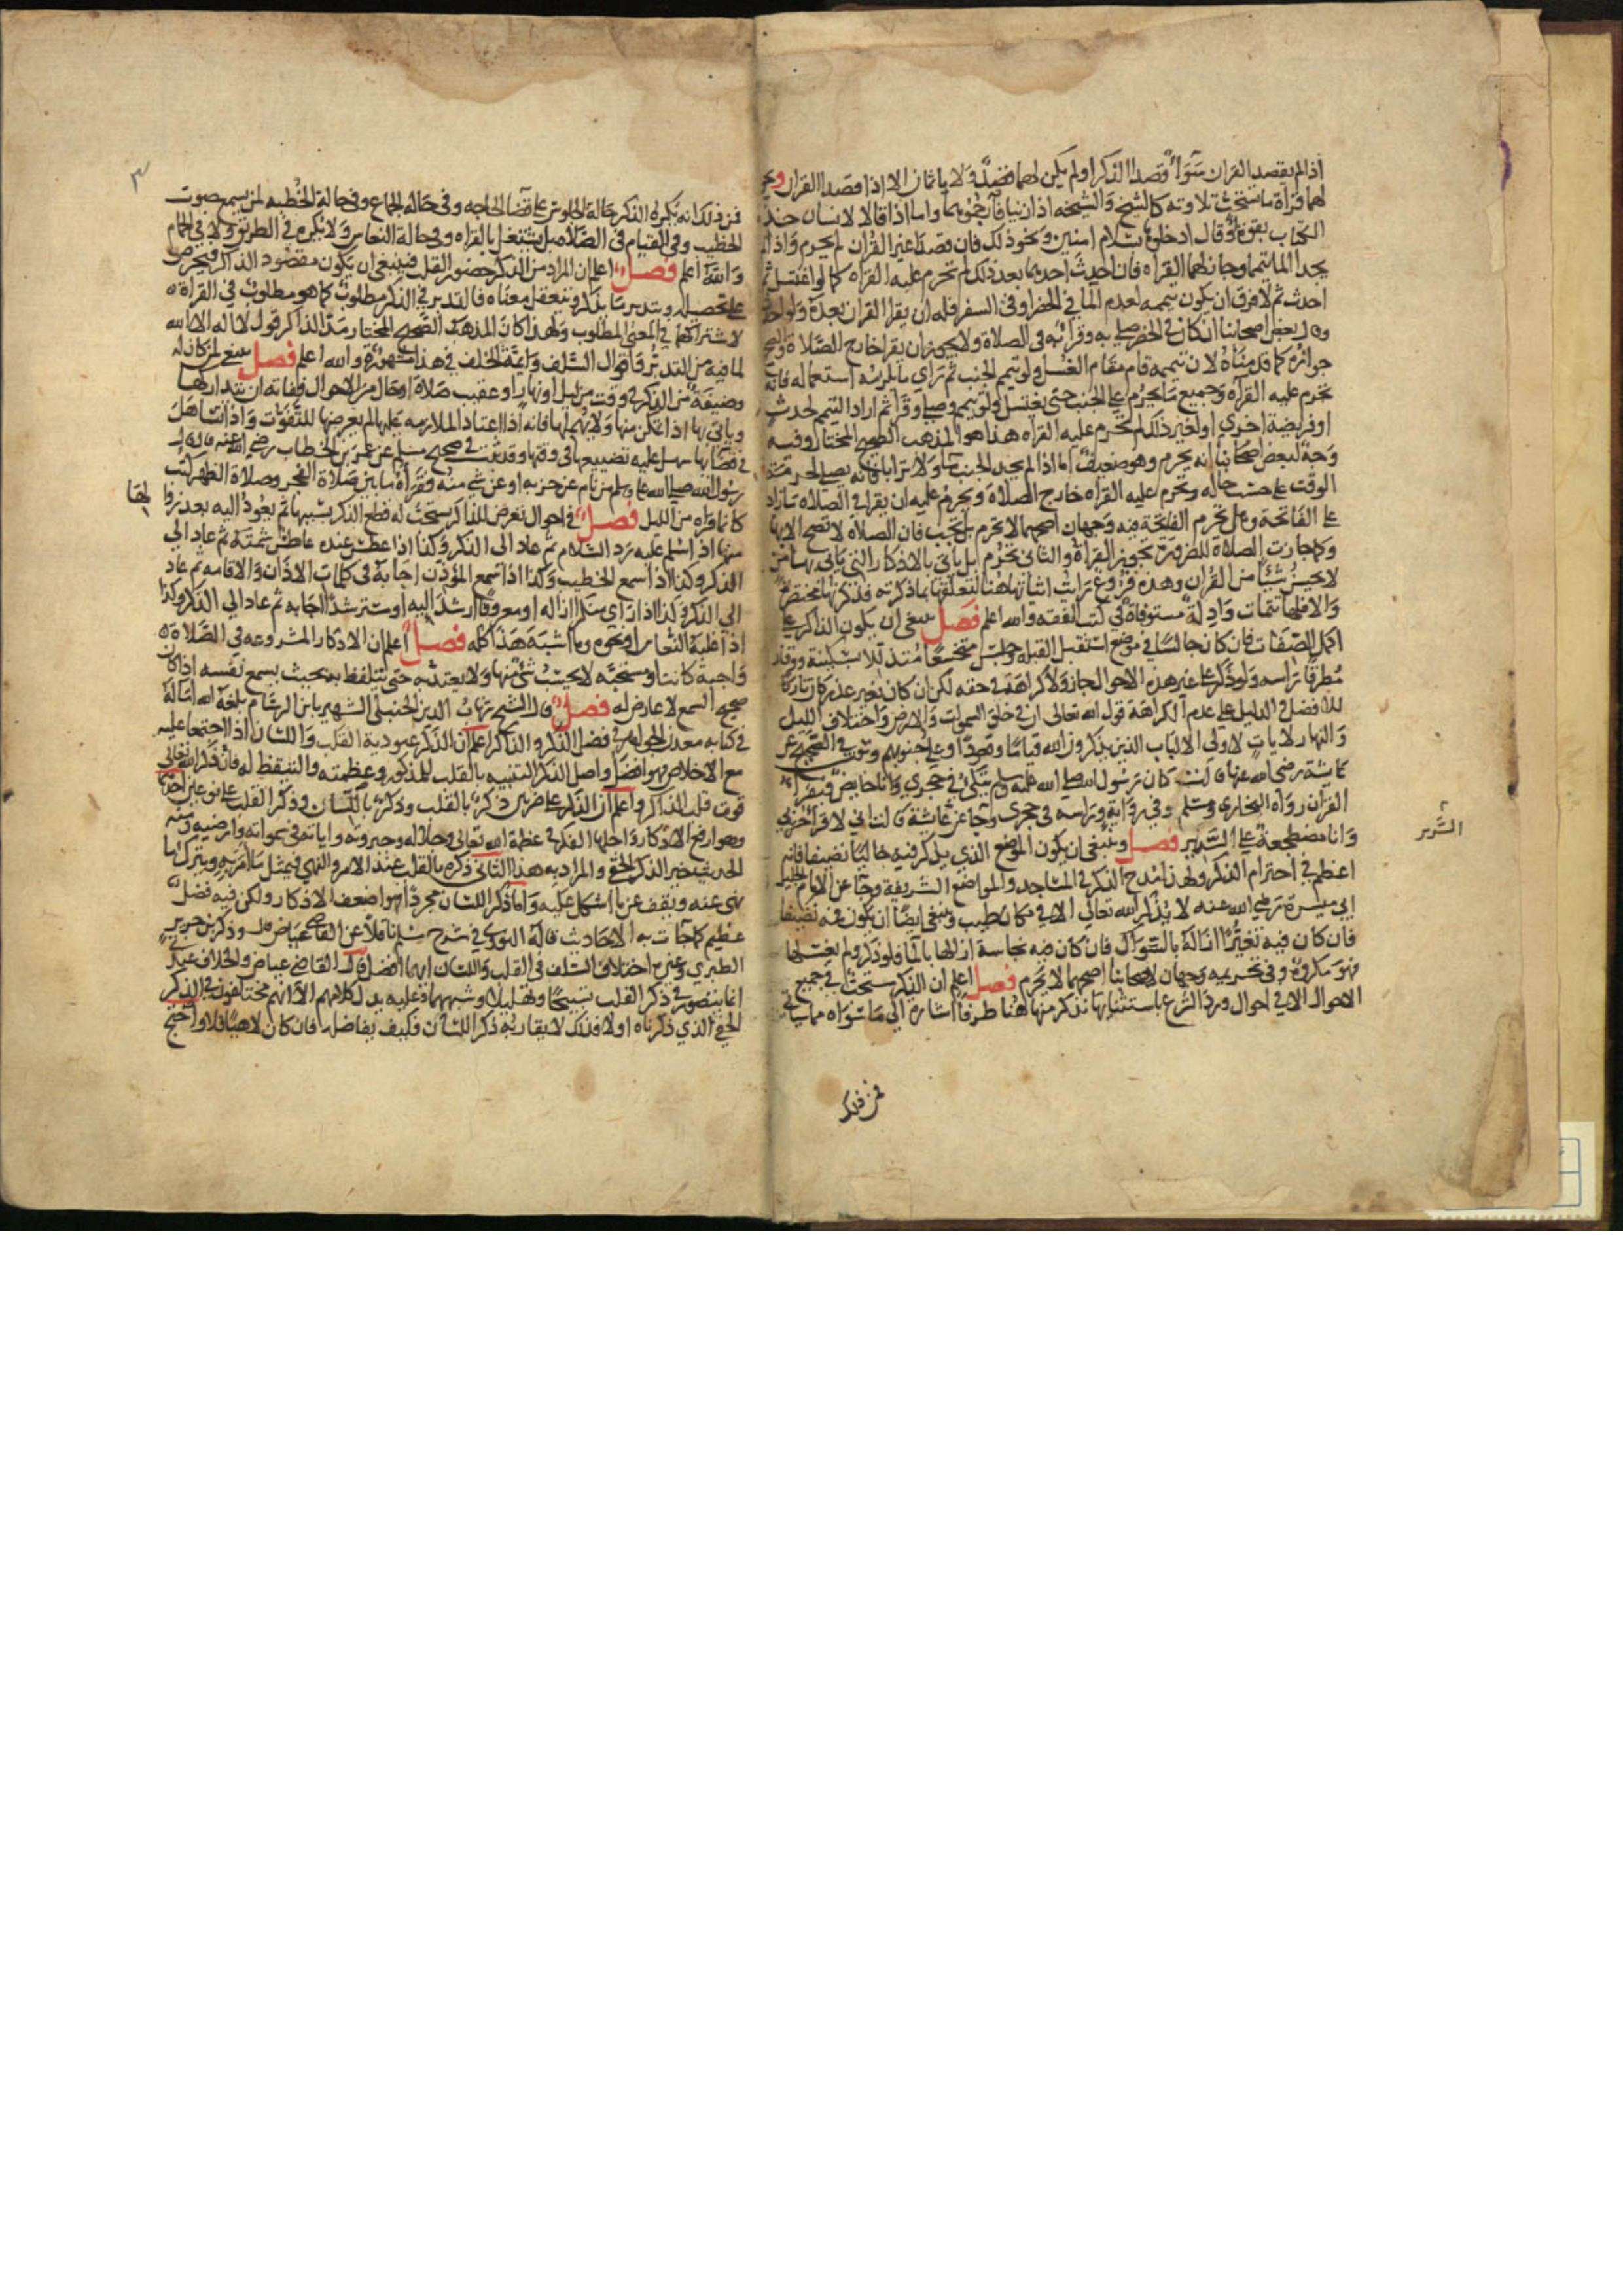 اذا لم يقصدا القران سَوَاءٌ قصدا الذكر او لم يكن لهما قصدٌ وَلا ياثمان الا اذا قصدا القران ويجوز
لهما قراة ما نسخت تلاوته كالشيخ وَالشيخه اذا زنيا فارجموهما واما اذا قالا لانسان خذ
الكتاب بقوة او قال ادخلوها بسلام امنين ونحو ذلك فان قصدا غير القران لم يحرم وَاذا لم
يجدا الما تيمما وجاز لهما القراه فان احدث احدهما بعد ذلك لم تحرم عليه القراه كما لو اغتسل ثم
احدث ثم لا فرق ان يكون تيممه لعدم الما في الحضر او في السفر فله ان يقرا القران بعده ولو احدث
وقال بعض اصحابنا ان كان في الحضر صلي به وقرا به في الصلاة ولا يجوز ان يقرا خارج الصَّلاة والصحيح
جوازه كما قدمنَاهُ لان تيممه قام مقام الغسل ولو تيمم الجنب ثم رَاي ما يلزمه استعماله فانه
تحرم عليه القرآه وَجميع مَا يحرم على الجنب حتى يغتسل ولو تيمم وصلي وقرا ثم اراد التيمم لحدث
او فريضة اخري او لغير ذلك لم تحرم عليه القراه هذا هو المذهب الصحيح المختار وفيه
وَجهٌ لبعض اصحابنا انه يحرم وهو ضعيف اما اذا لم يجد الجنب ماً وَلا ترابا فانه يصلي لحرمة
الوقت على حسب حاله وتحرم عليه القراه خارج الصلاة وَيحرم عليه ان يقرا في الصلاه مَا زاد
على الفاتحة وهل تحرم الفاتحة فيه وَجهان اصحهما لا تحرم بل تجب فان الصلاة لا تصح الا بها
وكما جازت الصلاة للضرورة تجوز القراة والثاني تحرم بل ياتي بالاذكار التي ياتي بها من
لا يحسن شيئا من القران وهذه فروع رَايت اثباتها هنا لتعلقها بما ذكرته فذكرتها مختصرة
وَالا فلها تتمات وَادلة مستوفاة في كتب الفقه والله اعلم فصل ينبغي ان يكون الذاكر على
اكمل الصفات فان كان جالسًا في موضع استقبل القبلة وجلس متخشعا متذللا بسكينة ووقار
مُطرقًا رَاسه وَلو ذكر على غير هذه الاحوال جاز وَلا كراهَة في حقه لكن ان كان بغير عذر كان تاركا
للافضل والدليل على عدم الكراهة قول الله تعالى ان في خلق السموات وَالارض وَاختلاف الليل
وَالنهار لايات لاولي الالباب الذين يذكرون الله قيامًا وقعودًا وعلى جنوبهم وثبت في الصحيح عن
عايشة رضي الله عنها قالت كان رَسُول الله صلي الله عليه وسلم يتكئ في حجري وَانا حايض فيقرا
القران رَوَاه البخاري ومسلم وفي رِوَاية وَرَاسه في حجري وجَا عن عَايشة قالت اني لاقرا حزبي
وَانا مضطجعة على السَّرير فصل وينبغى ان يكون الموضع الذي يذكر فيه خاليًا نضيفا فانه
اعظم في احترام الذكر ولهذا مُدح الذكر في المسَاجد والمواضع الشريفة وجَا عن الامام الجليل
ابي ميسرة رَضي الله عنه لا يُذكر الله تعالى الا في مكان طيب وينبغي ايضا ان يكون فمه نضيفا
فان كان فيه تغيرٌ ازاله بالسّواك فان كان فيه نجاسة ازالها بالما فلو ذكر ولم يغسلها
فهو مكروه وفي تحريمه وَجهان لاصحابنا اصحهما لا يحرم فصل اعلم ان الذكر مستحبٌ في جميع
الاحوال الا في احوال ورَد الشرع باستثنايهَا نذكر منها هُنا طرفًا اشارة الي مَا سوَاه مما ياتي
السَّرير
فمن ذلك
٣
فمن ذلك انه يُكره الذكر حَالة الجلوس على قضا الحاجه وفي حَالة الجماع وفي حالة الخُطبه لمن يسمع صوت
الخطيب وفي القيام في الصَّلاة بل يشتغل بالقراه وفي حَالة النعاس وَلا يكره في الطريق وَلا في الحمام
وَالله اعلم فصلٌ اعلم ان المراد من الذكر حضور القلب فينبغي ان يكون مقصُود الذاكر فيحرص
على تحصيله ويتدبر مَا يذكر ويتعقل معناه فالتدبر في الذكر مطلوبٌ كما هو مطلوب في القراة
لاشتراكهما في المعنى المطلوب وَلهذا كان المذهَب الصَّحيح المختار مَدّ الذاكر قول لا اله الا الله
لما فيه من التدبُر وَاقوال السَّلف وَايمة الخلف في هذا مشهُورَة والله اعلم فصل ينبغي لمن كان له
وضيفة من الذكر في وقت من ليل او نهار او عقيب صَلاة او حال من الاحوال ففاته ان يتداركها
وياتي بها اذا تمكن منها وَلا يُهملها فانه اذا اعتاد الملازمه عَليها لم يعرضها للتفويت وَاذا تسَاهل
في قضائها سهل عليه تضييعها في وقتها وقد ثبت في صحيح مسلم عن عمر بن الخطاب رضي الله عنه قال قال
رسُول الله صلي الله عليه وسلم من نام عن حزبه او عن شي منه فقرأه ما بين صَلاة الفجر وصلاة الظهر كتب
كانما قراه من الليل فصلٌ في احوال تعرض للذاكر يستحب له قطع الذكر بسببها ثم يعُود اليه بعد زوالها
منها اذا سُلم عليه رَد السَّلام ثم عاد الى الذكر وَكذا اذا عطسَ عنده عاطس شمته ثم عاد الي
الذكر وكذا اذا سمع الخطيب وَكذا اذا سمع المؤذن اجابة في كلمات الاذان وَالاقامه ثم عاد
الي الذكر وكذا اذا رَاي منكرا ازاله او معروفًا ارشد اليه او مسترشدٌ اجابه ثم عاد الي الذكر وكذا
اذا غلبهُ النعَاس او نحوه وما اشبَهَ هَذا كله فصلٌ اعلم ان الاذكار المشروعه في الصَّلاة
وَاجبة كانت او مستحبَّه لا يحسَبُ شي منها وَلا يعتد به حتى يتلفظ به بحيث يسمع نفسه اذا كان
صحيح السمع لا عارض له فصلٌ قال الشيخ شهابُ الدين الحنبلى الشهير بابن الرسَّام بلغه الله امَالهُ
في كتابه معدن الجواهر في فضل الذكر والذاكر اعلم ان الذكر عبودية القلب وَاللسَان اذا اجتمعا عليه
مع الاخلاص فهو افضَل واصل الذكر التنبيه بالقلب للمذكور وعظمته والتيقظ له فان ذكر الله تعالى
قوت قلب الذاكر واعلم ان الذكر على ضربين ذكرٌ بالقلب وذكرٌ باللسَان وذكر القلب على نوعين احدهما
وهو ارفع الاذكار وَاجلها الفكر في عظمة الله تعالى وجلاله وجبروته واياته في سمواته وارضيه ومنه
الحديث خير الذكر الخفي والمراد به هذا الثاني ذكره بالقلب عند الامر والنهي فيمتثل مَا امر به ويترك ما
نهي عنه ويقف عن ما اشكل عليه وَاما ذكر اللسَان مجردًا فهو اضعف الاذكار ولكن فيه فضلٌ
عظيم كما جَآت به الاحاديث قاله النووي في شرح مسلم ناقلاً عن القاضي عيَاض قال وذكر بن جرير
الطبري وغيره اختلاف السَّلف في القلب وَاللسان ايهما افضل قال القاضي عياض والخلاف عندي
انما يتصور في ذكر القلب تسبيحًا وتهليلا وشبههما وعليه يدل كلامهم لا انهم مختلفون في الذكر
الخفي الذي ذكرناه اولا فذلك لا يقاربه ذكر اللسَان فكيف يفاضله فان كان لاهيًا فلا واحتج